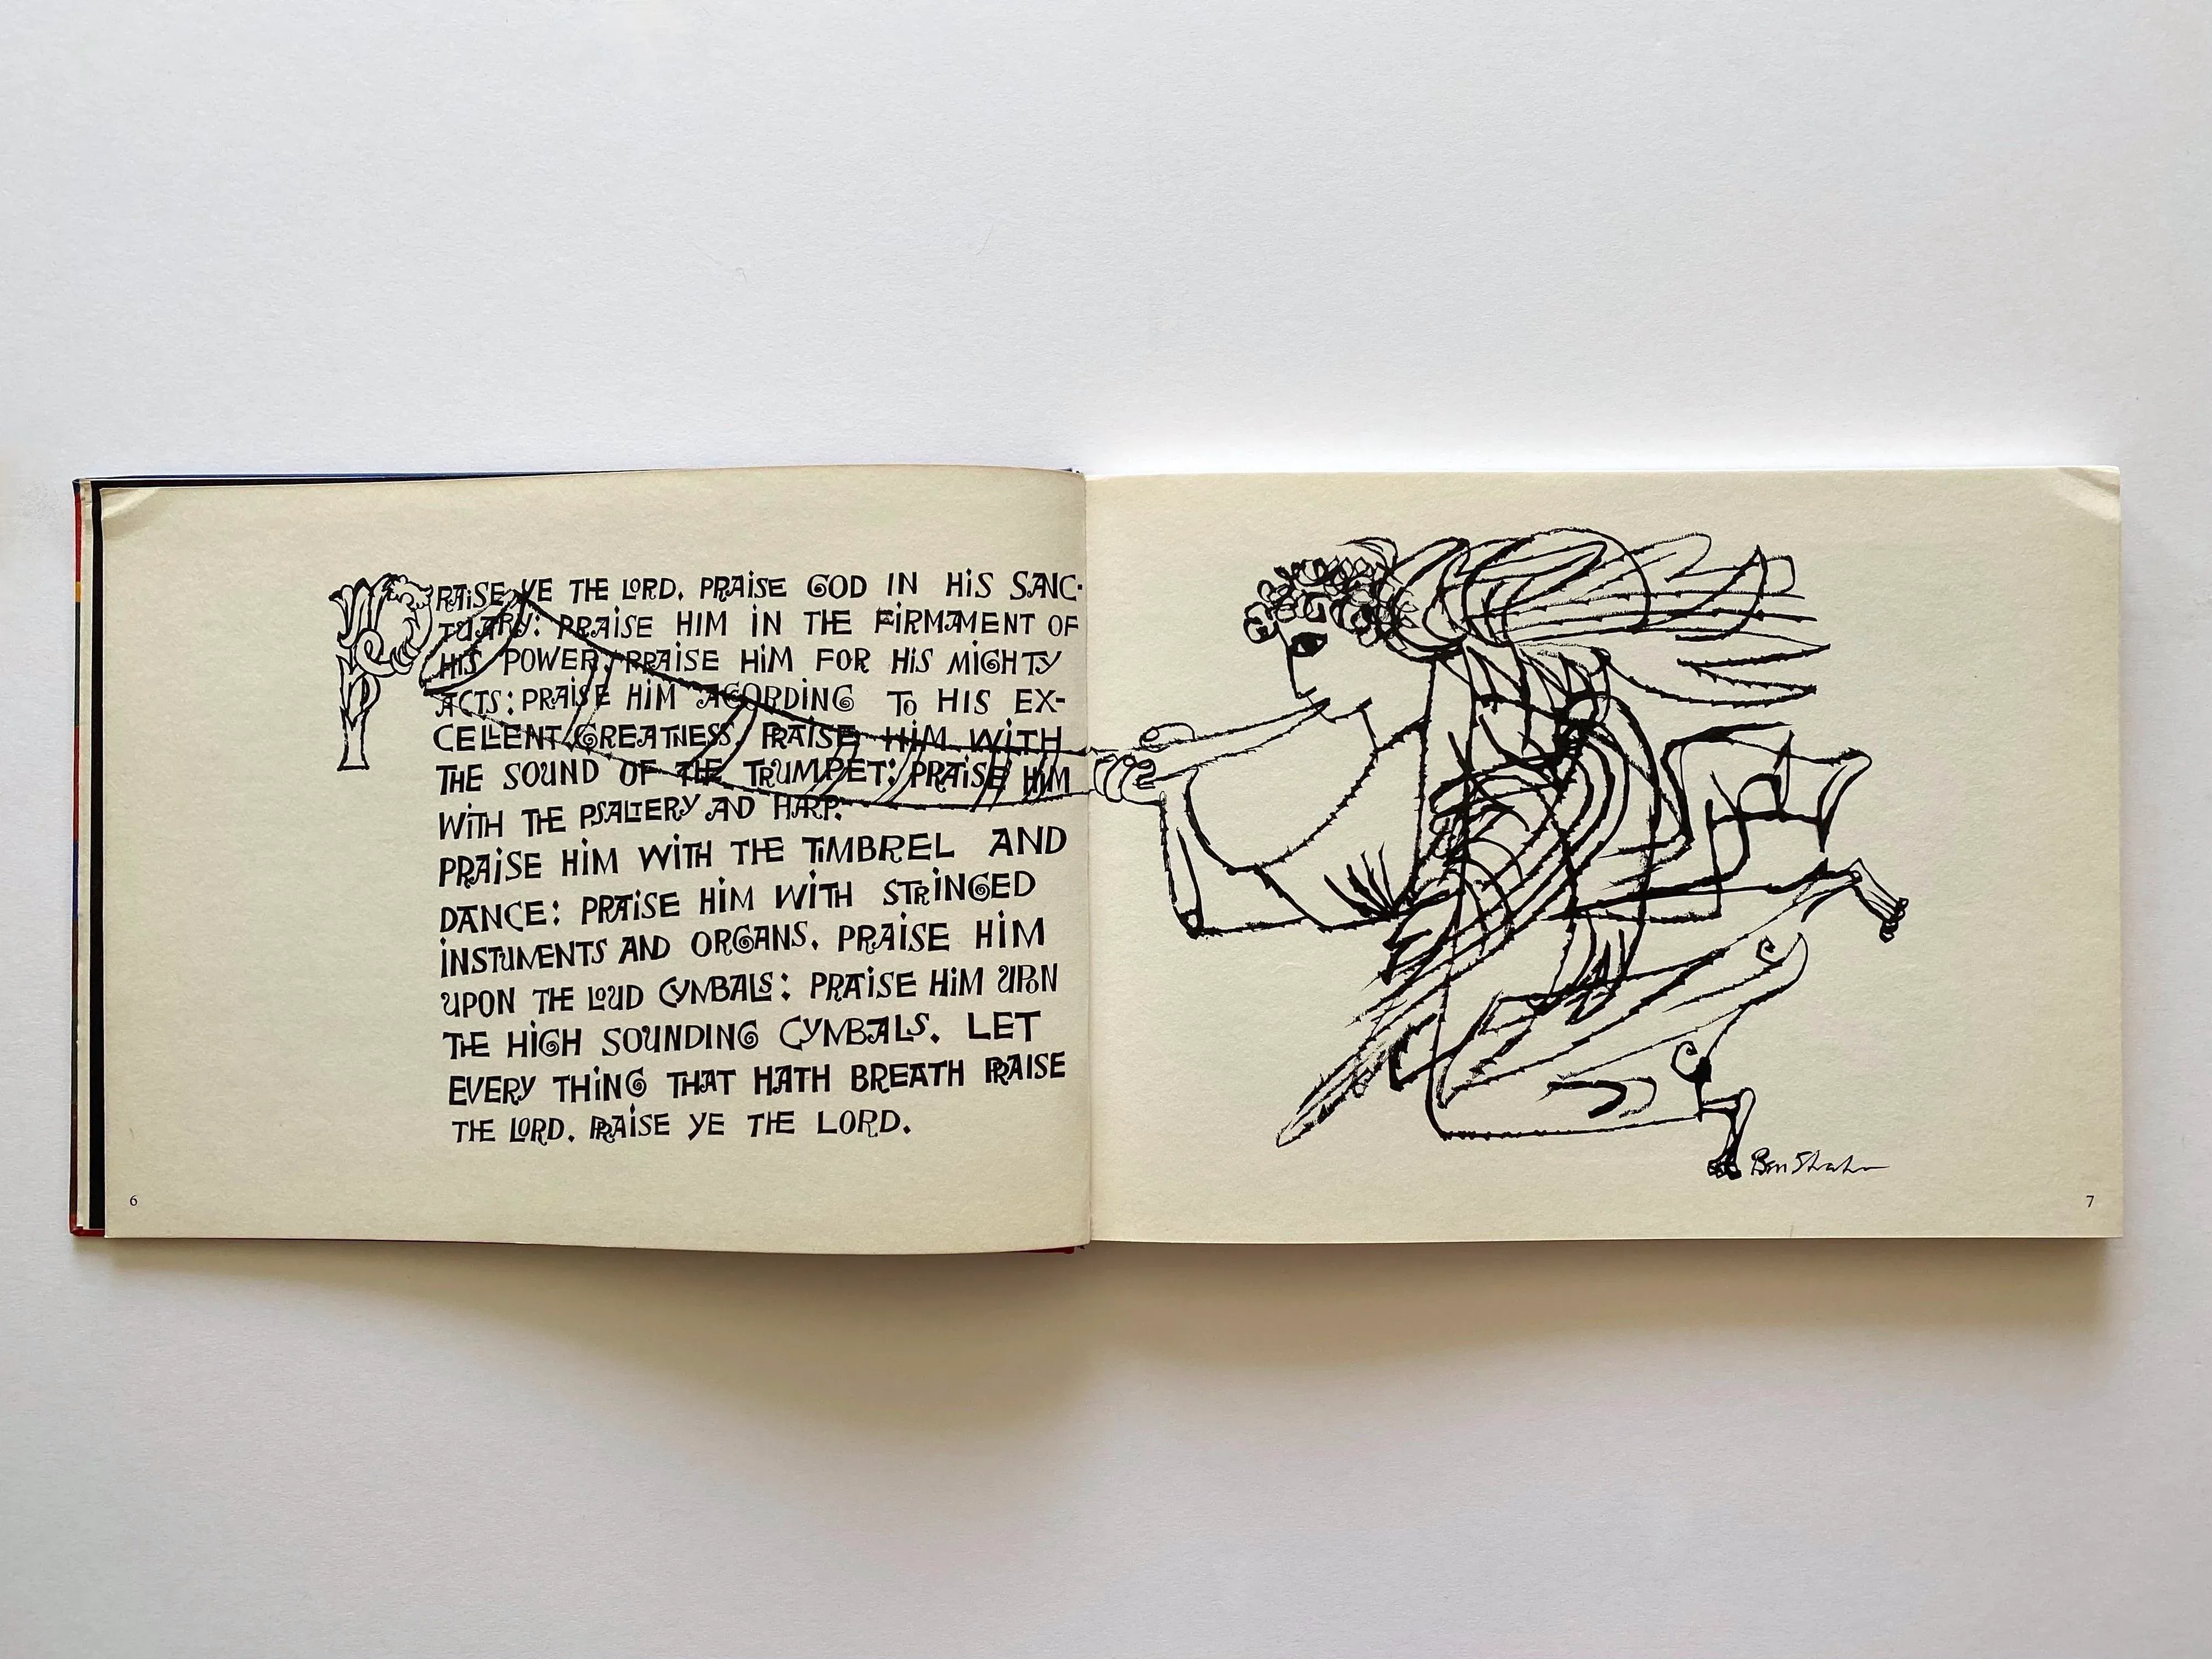 PRAiSE YE THE LORD. PRAiSE GOD IN HiS SANC-
TUARY: PRAiSE HIM IN THE FiRMAMENT OF
HIS POWER: PRAISE HiM FOR HiS MIGHTY
ACTS: PRAiSE HiM ACORDING To HIS EX-
CELLENT GREATNESS. PRAISE HIM WITH
THE SOUND OF THE TRUMPET: PRAiSE HiM
WiTH THE PSALTERY AD HARP.
PRAiSE HiM WITH THE TiMBREL AND
DANCE: PRAiSE HiM WiTH STRiNGED
iNSTUMENTS AND ORGANS. PRAiSE HiM
UPON THE LOUD CYMBALS: PRAiSE HiM UPON
THE HiGH SOUNDING CYMBALS. LET
EVERY THiNG THAT HATH BREATH PRAISE
THE LORD. PRAiSE YE THE LORD.
6
Ben Shahn
7